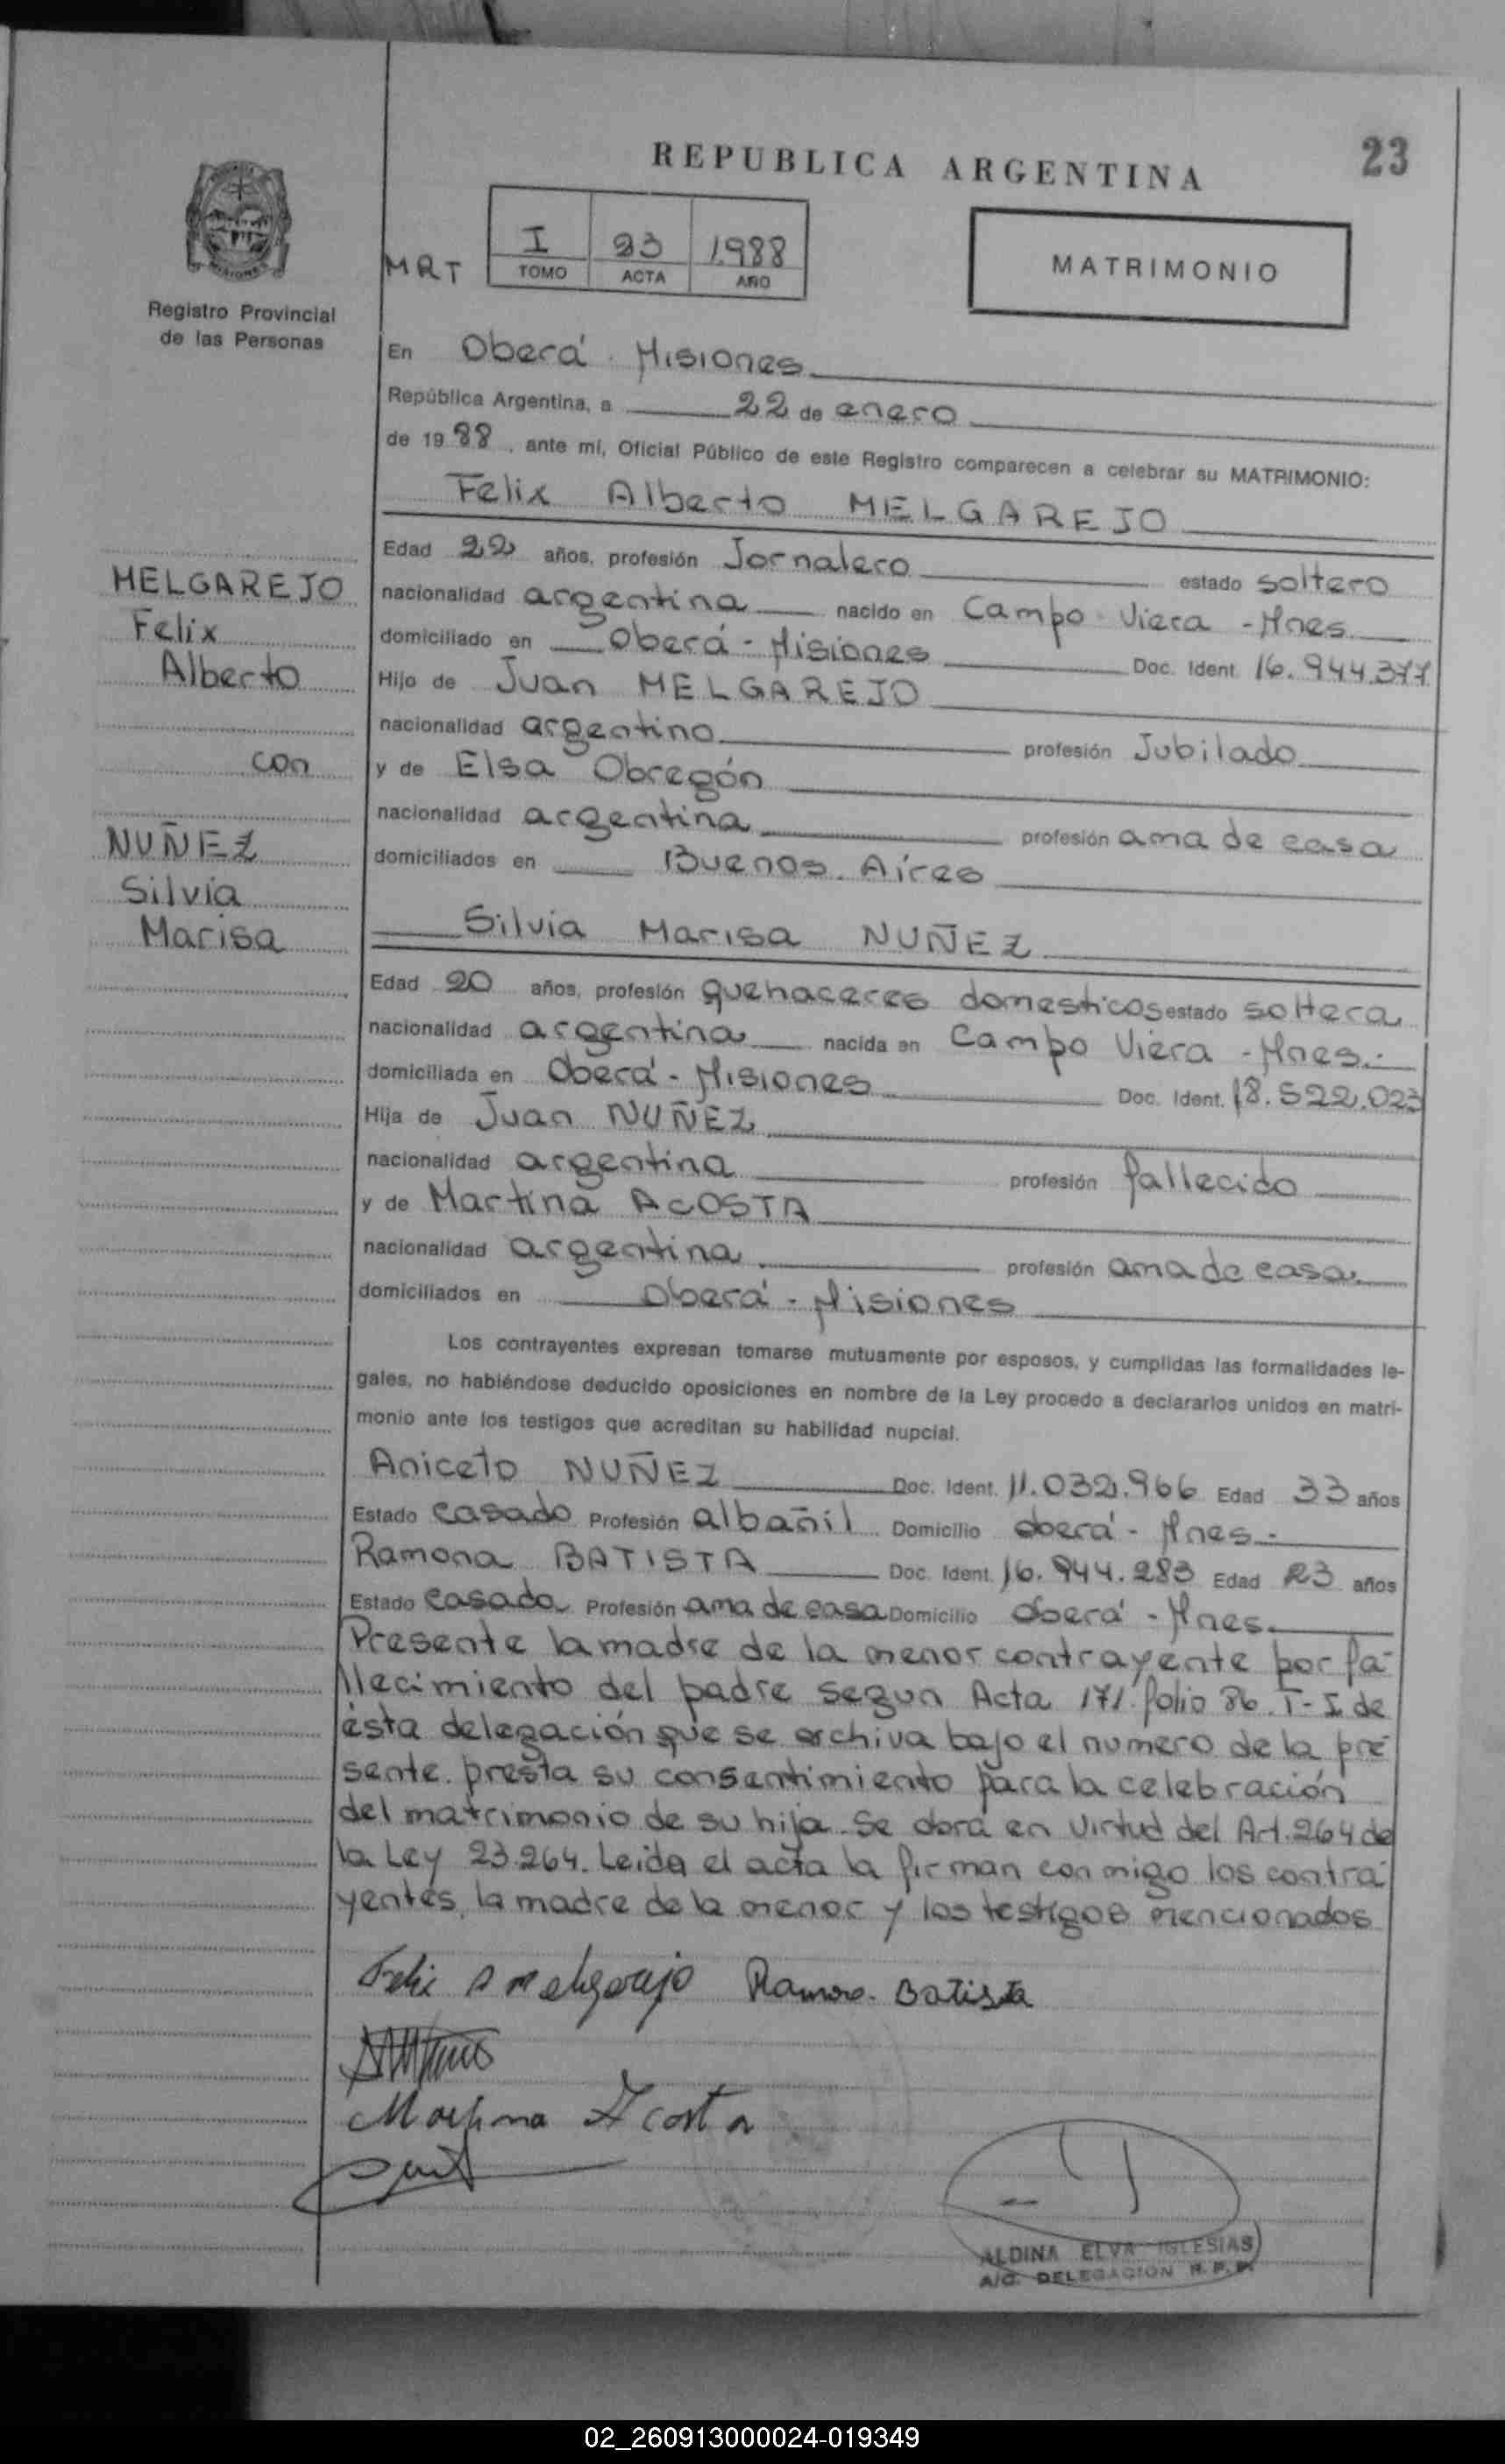 REPUBLICA ARGENTINA
23
MRT
I
23
1.988
TOMO
ACTA
AÑO
MATRIMONIO
MISIONES
Registro Provincial
de las Personas
En Oberá. Misiones
República Argentina, a 22 de enero
de 19 88, ante mí, Oficial Público de este Registro comparecen a celebrar su MATRIMONIO:
Felix Alberto MELGAREJO
Edad 22 años, profesión Jornalero estado soltero
nacionalidad argentina nacido en Campo Viera - Mnes.
domiciliado en Oberá - Misiones Doc. Ident. 16.944.377
Hijo de Juan MELGAREJO
nacionalidad argentino profesión Jubilado
y de Elsa Obregón
nacionalidad argentina profesión ama de casa
domiciliados en Buenos. Aires
MELGAREJO
Felix
Alberto
con
NUÑEZ
Silvia
Marisa
Silvia Marisa NUÑEZ
Edad 20 años, profesión quehaceres domesticos estado soltera
nacionalidad argentina nacida en Campo Viera - Mnes.-
domiciliada en Oberá - Misiones Doc. Ident. 18.522.023
Hija de Juan NUÑEZ
nacionalidad argentina profesión fallecido
y de Martina ACOSTA
nacionalidad argentina profesión ama de casa.
domiciliados en Oberá - Misiones
Los contrayentes expresan tomarse mutuamente por esposos, y cumplidas las formalidades le-
gales, no habiéndose deducido oposiciones en nombre de la Ley procedo a declararlos unidos en matri-
monio ante los testigos que acreditan su habilidad nupcial.
Aniceto NUÑEZ Doc. Ident. 11.032.966 Edad 33 años
Estado casado Profesión albañil Domicilio Oberá - Mnes.-
Ramona BATISTA Doc. Ident. 16.944.283 Edad 23 años
Estado casada Profesión ama de casa Domicilio Oberá - Mnes.
Presente la madre de la menor contrayente por fa-
llecimiento del padre segun Acta 171. folio 86. T-I de
ésta delegación que se archiva bajo el numero de la pre
sente. presta su consentimiento para la celebración
del matrimonio de su hija. Se obra en virtud del Art. 264 de
la Ley 23.264. Leida el acta la firman conmigo los contra-
yentes, la madre de la menor y los testigos mencionados
Felix A Melgarejo Ramona Batista
Martina Acosta
ALDINA ELVA IGLESIAS
A/C. DELEGACION R. P. P.
02_260913000024-019349